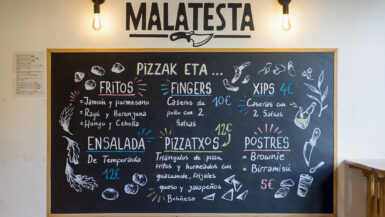 MALATESTA
PIZZAK ETA ...
FRITOS
= Jamón y parmesano
= Ragú y Berenjena
= Hongo y Cebolla
FINGERS
Caseros de 10€
pollo con 2
Salsas
XIPS 4€
Caseras con
2 Salsas
ENSALADA
De Temporada
12€
PIZZATXOS 12€
Triángulos de pizza
Fritos y horneados con
guacamole, frijoles
queso y jalapeños
Boloñesa
POSTRES
= Brownie
= Birramisú
5€